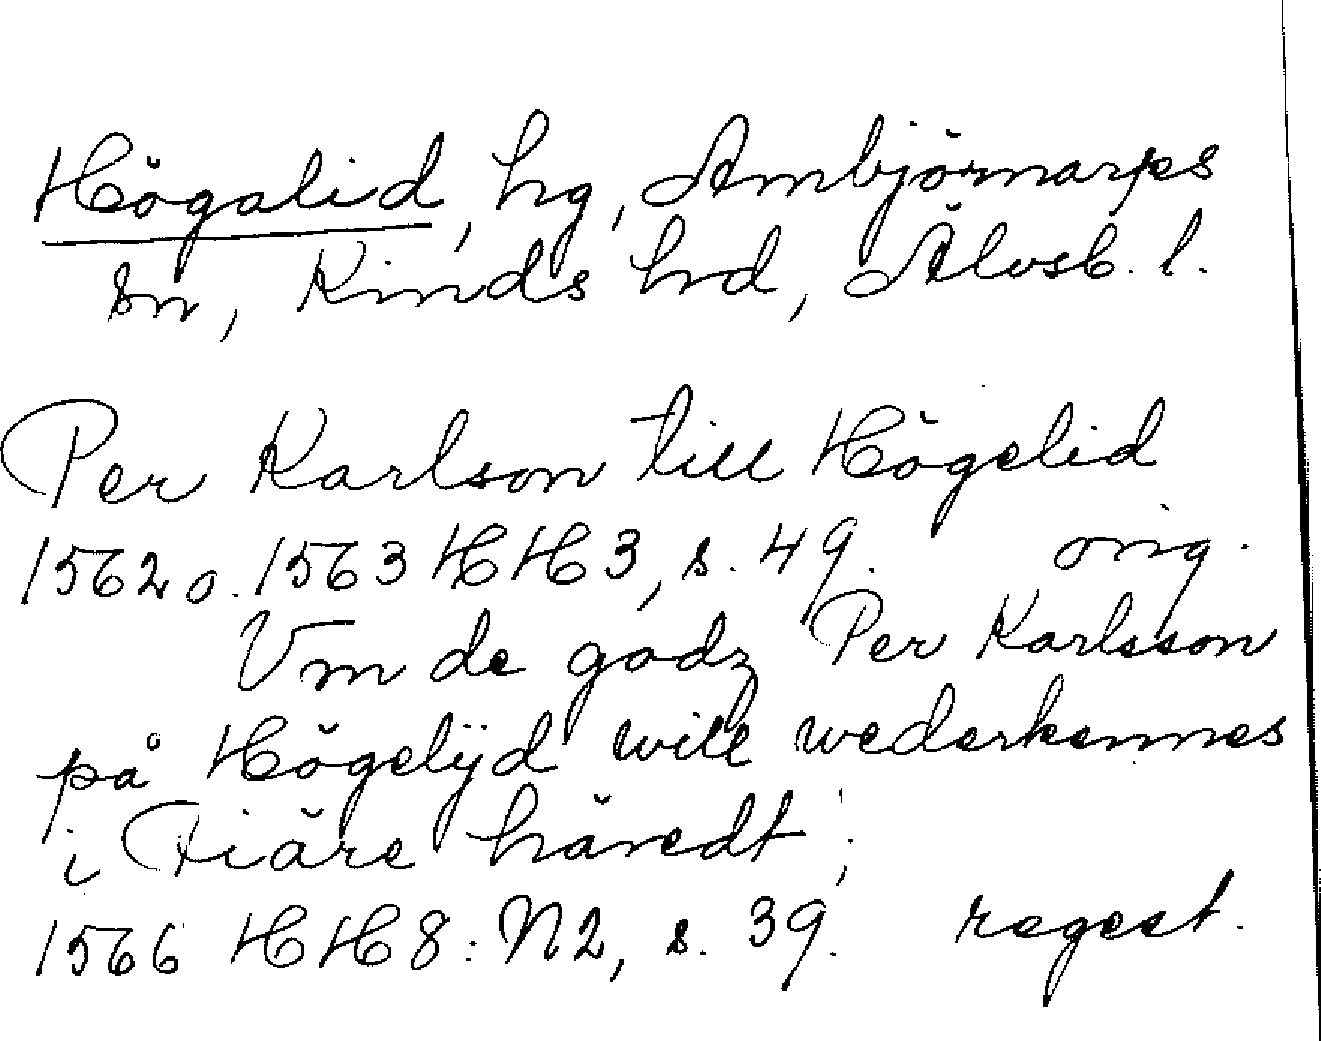 Högalid, hg, Ambjörnarps
sn, Kinds hd, Älvsb. l.
Per Karlson till Högelid
1562 o. 1563 HH3, s. 49. orig.
Vm de godz Per Karlsson
på Högelijd will wederkennes
i Fiäre häredt;
1566 HH8: N2, s. 39. regest.